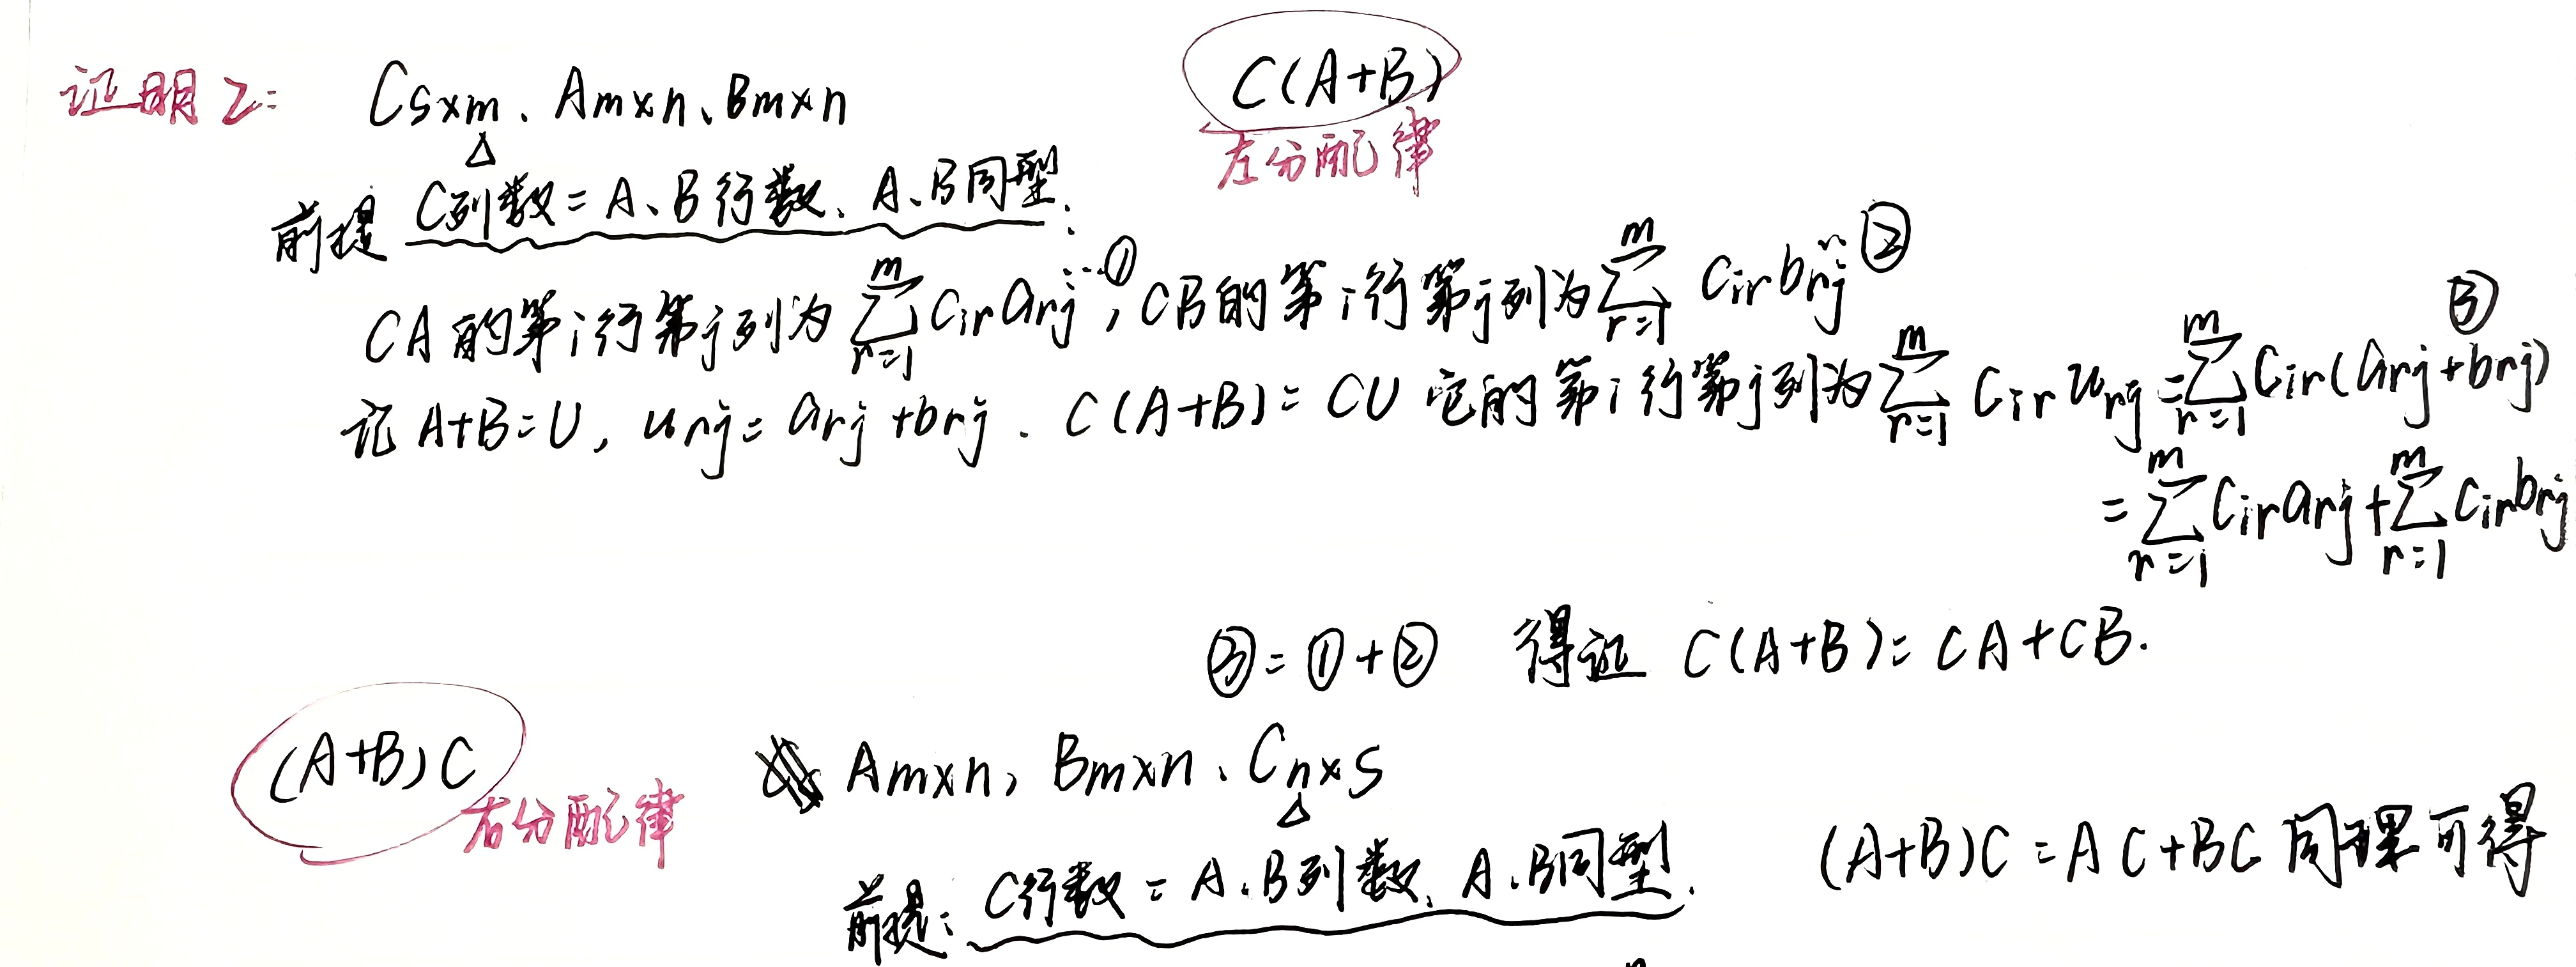 证明2: C s×m、A m×n、B m×n C(A+B)
△ 左分配律
前提 C列数=A、B行数、A、B同型.
CA的第i行第j列为 ∑_{r=1}^{m} c_{ir}a_{rj} …①, CB的第i行第j列为 ∑_{r=1}^{m} c_{ir}b_{rj} …②
记 A+B=U, u_{rj}=a_{rj}+b_{rj}. C(A+B)=CU 它的第i行第j列为 ∑_{r=1}^{m} c_{ir}u_{rj} = ∑_{r=1}^{m} c_{ir}(a_{rj}+b_{rj}) ③
= ∑_{r=1}^{m} c_{ir}a_{rj} + ∑_{r=1}^{m} c_{ir}b_{rj}
③=①+② 得证 C(A+B)=CA+CB.
(A+B)C A m×n, B m×n、C n×s
右分配律 △
前提: C行数=A、B列数、A、B同型. (A+B)C=AC+BC 同理可得